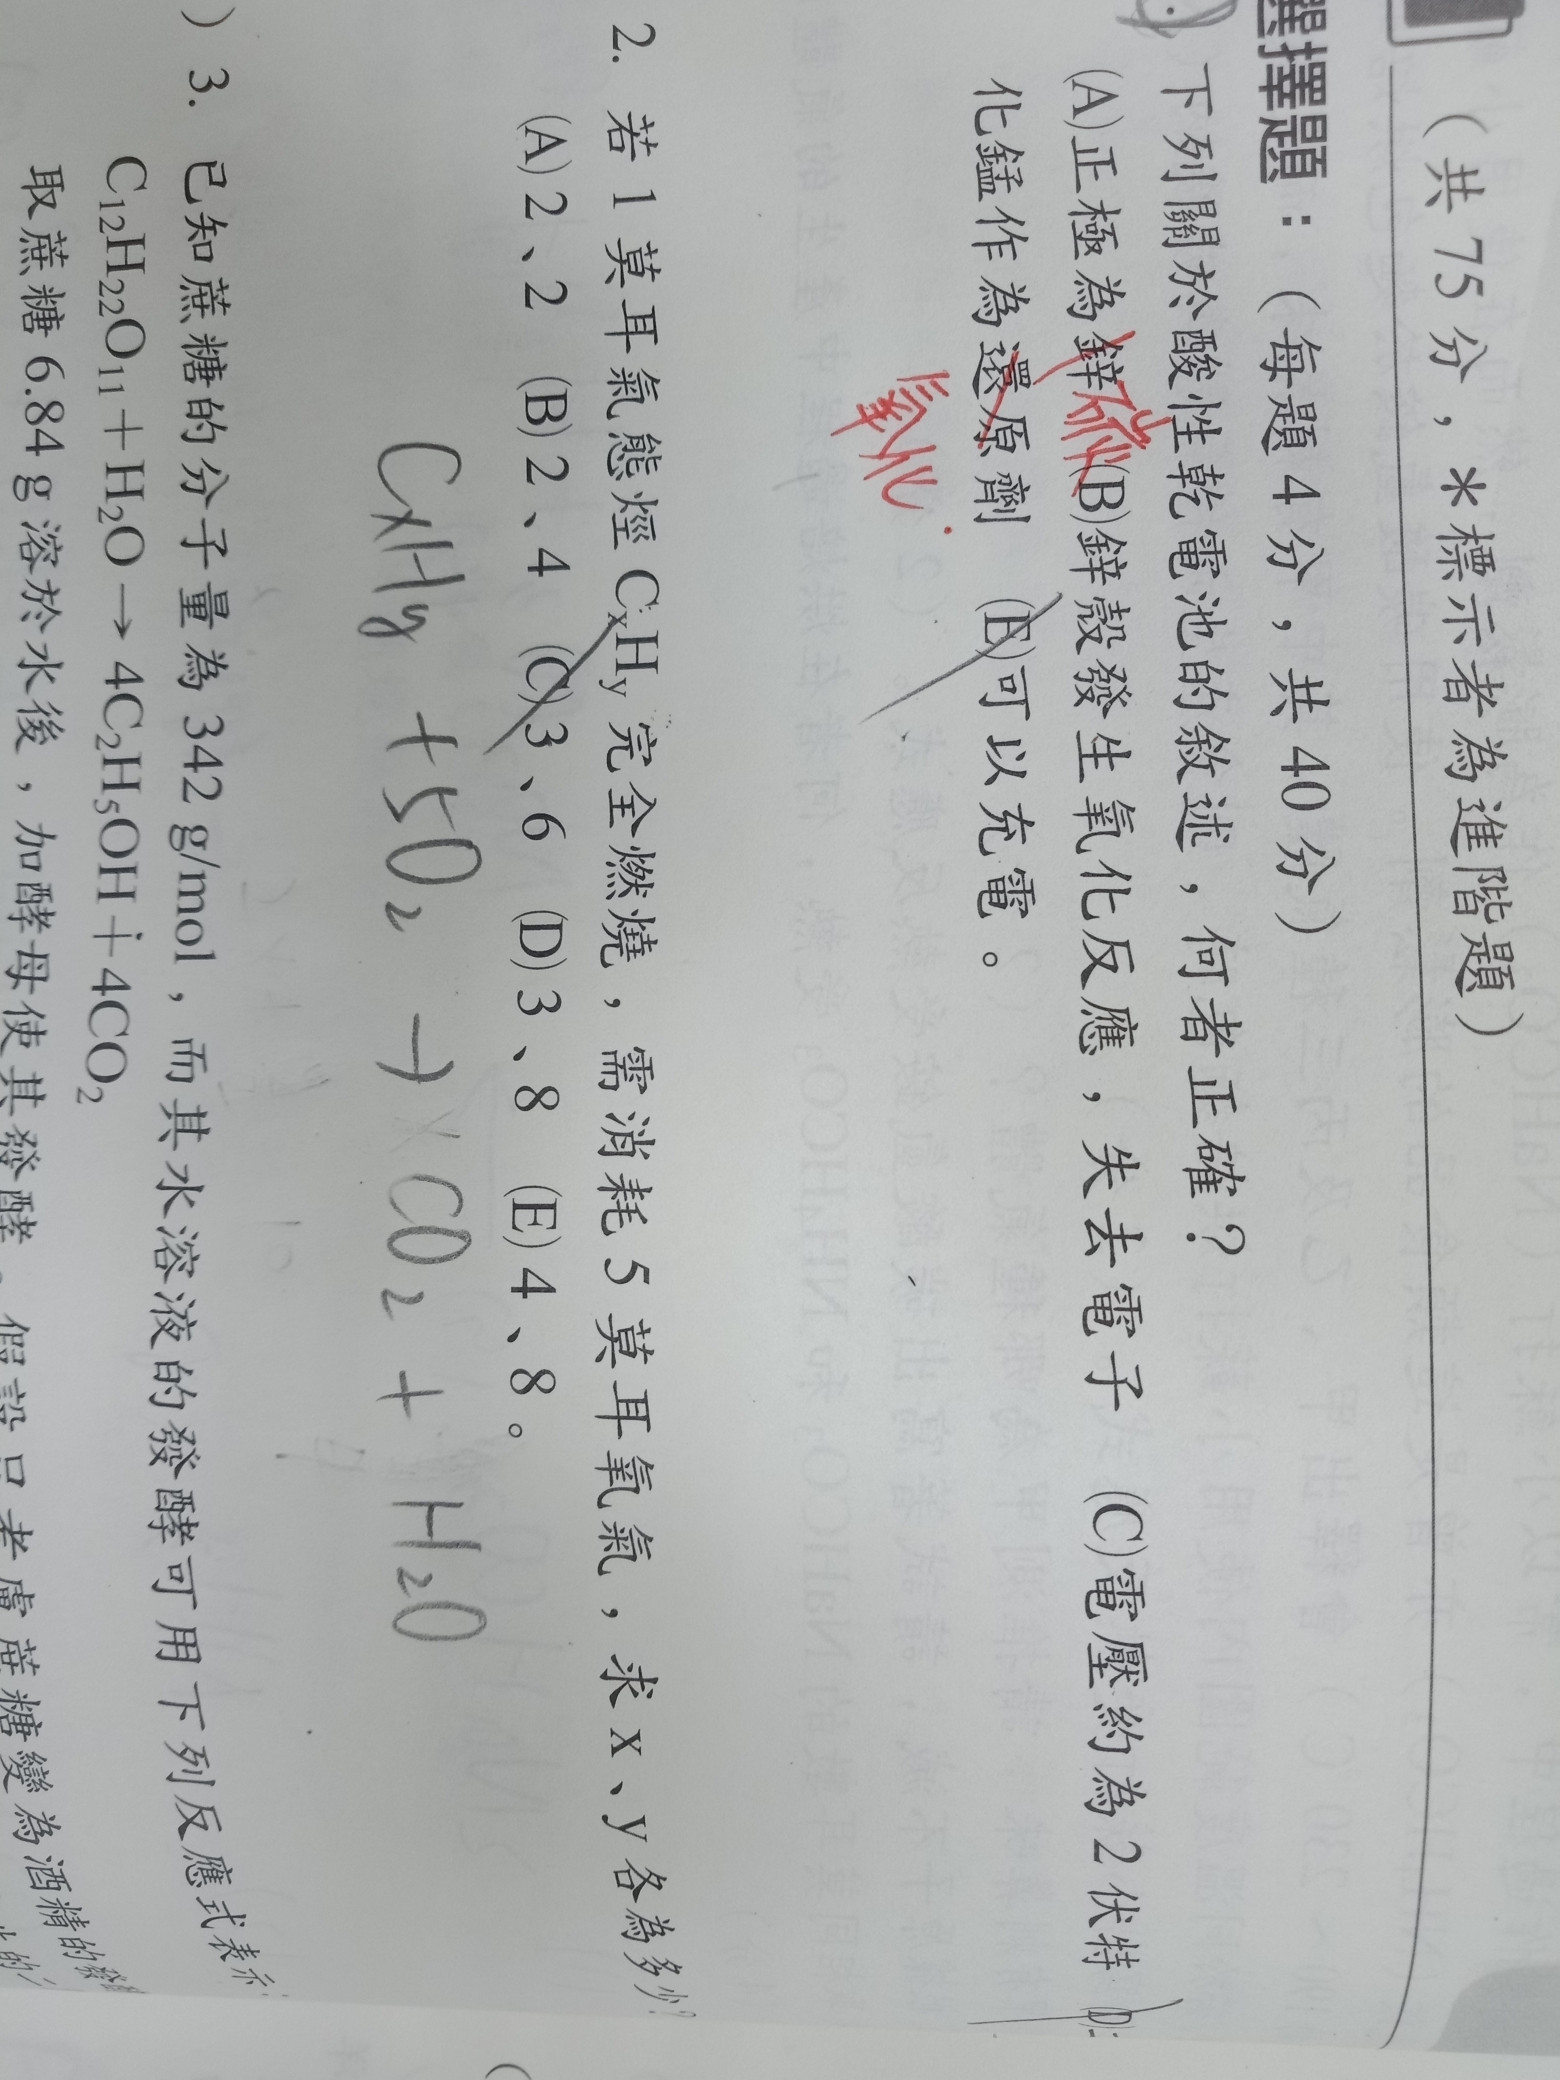 （共75分，＊標示者為進階題）
擇題：（每題4分，共40分）
下列關於酸性乾電池的敘述，何者正確？
(A)正極為鋅 碳 (B)鋅殼發生氧化反應，失去電子 (C)電壓約為2伏特 (D)
化錳作為還原劑 (E)可以充電。
氧化
2. 若1莫耳氣態烴CxHy完全燃燒，需消耗5莫耳氧氣，求x、y各為多少？
(A)2、2 (B)2、4 (C)3、6 (D)3、8 (E)4、8。
CxHy + 5O₂ → xCO₂ + H₂O
）3. 已知蔗糖的分子量為342 g/mol，而其水溶液的發酵可用下列反應式表示：
C₁₂H₂₂O₁₁＋H₂O→4C₂H₅OH＋4CO₂
取蔗糖6.84 g溶於水後，加酵母使其發酵。假設只考慮蔗糖變為酒精的發酵